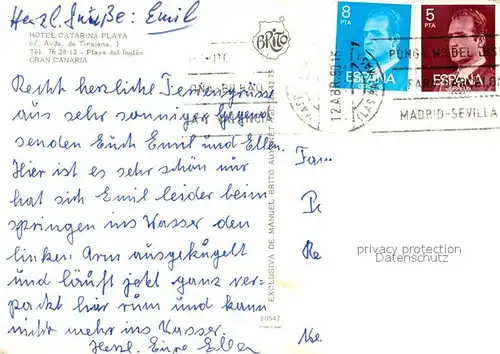 Herzl. Grüße: Emil
HOTEL CATARINA PLAYA
c/. Avda. de Tirajana, 1
Tel. 76 28 12 - Playa del Inglés
GRAN CANARIA
BRITO
8
PTA
ESPAÑA
5
PTA
ESPAÑA
CORREOS
12 ABR
(LAS PALMAS)
PONGA
DEL
MADRID-SEVILLA
Recht herzliche Feriengrüsse
aus sehr sonniger Gegend
senden Euch Emil und Ellen.
Hier ist es sehr schön nur
hat sich Emil leider beim
springen ins Wasser den
linken Arm ausgekugelt
und läuft jetzt ganz ver-
packt hier rum und kann
nicht mehr ins Wasser.
Herzl. Eure Ellen
EXCLUSIVA DE MANUEL BRITO AUVERT
10547
Fam
Re
privacy protection
Datenschutz